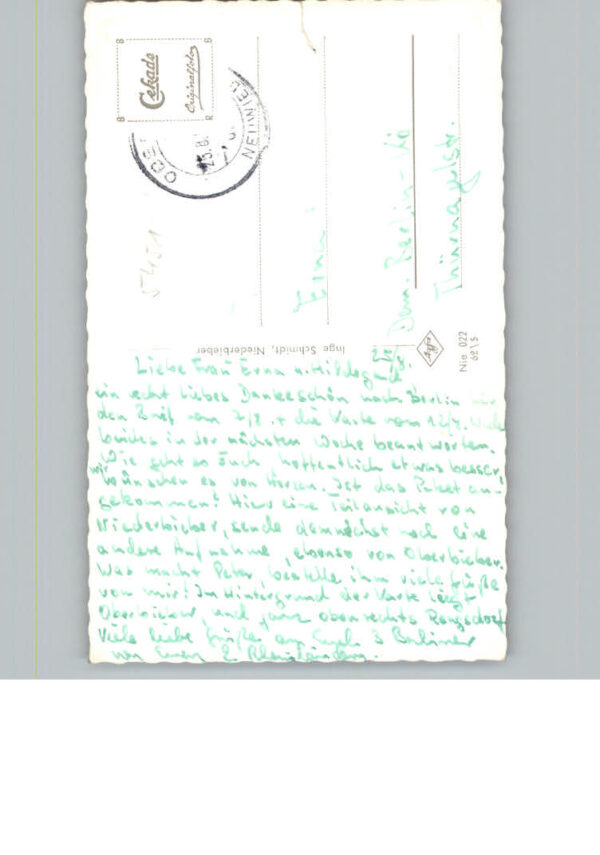 Cekade
Originalfoto
OBE
25.8.
NEUWIED
Erna
Dem Berlin
Inge Schmidt, Niederbieber
Agfa
Nie 022
62/5
25/8.
Liebe Frau Erna u. Hildegard
ein recht liebes Dankeschön nach Berlin für
den Brief vom 2/8. + die Karte vom 12/7. Werde
beides in der nächsten Woche beantworten.
Wie geht es Euch hoffentlich etwas besser,
wir wünschen es von Herzen. Ist das Paket an-
gekommen? Hier eine Teilansicht von
Niederbieber, sende demnächst noch eine
andere Aufnahme, ebenso von Oberbieber.
Was macht Peter, bestelle ihm viele Grüße
von mir! Im Hintergrund der Karte liegt
Oberbieber, und ganz oben rechts Rengsdorf
Viele liebe Grüße an Euch 3 Berliner
von Euren 2 Rheinländern.